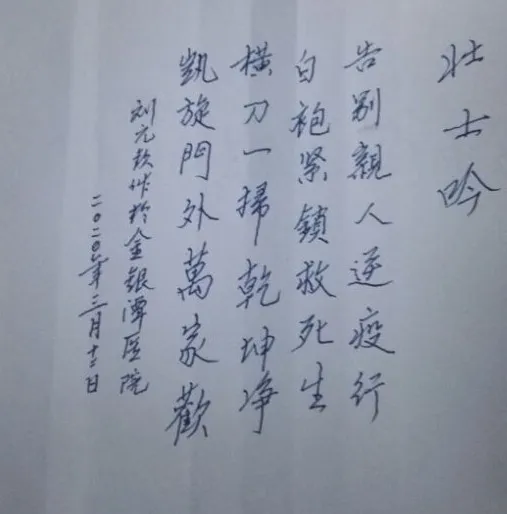 壮士吟
告别親人逆疫行
白袍緊鎖救死生
横刀一掃乾坤净
凱旋門外萬家歡
刘元欽作於金银潭医院
二〇二〇年三月十二日